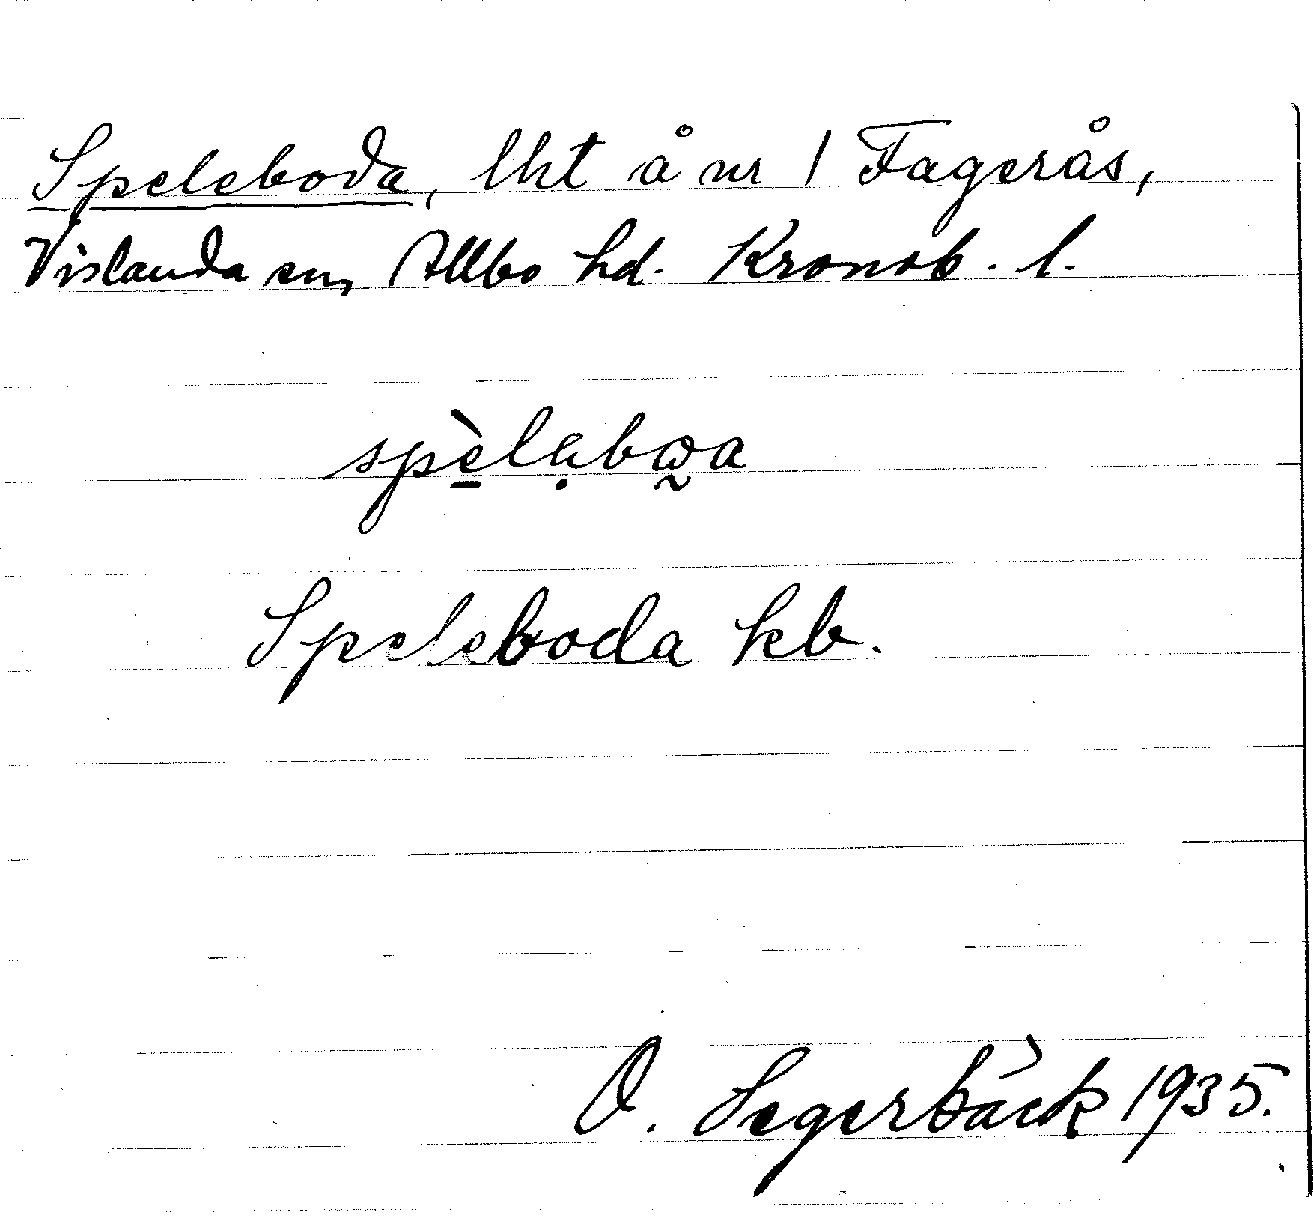 Speleboda, lht å nr 1 Fagerås,
Vislanda sn, Allbo hd. Kronob. l.
spèlạbωa
Speleboda kb.
O. Segerbäck 1935.